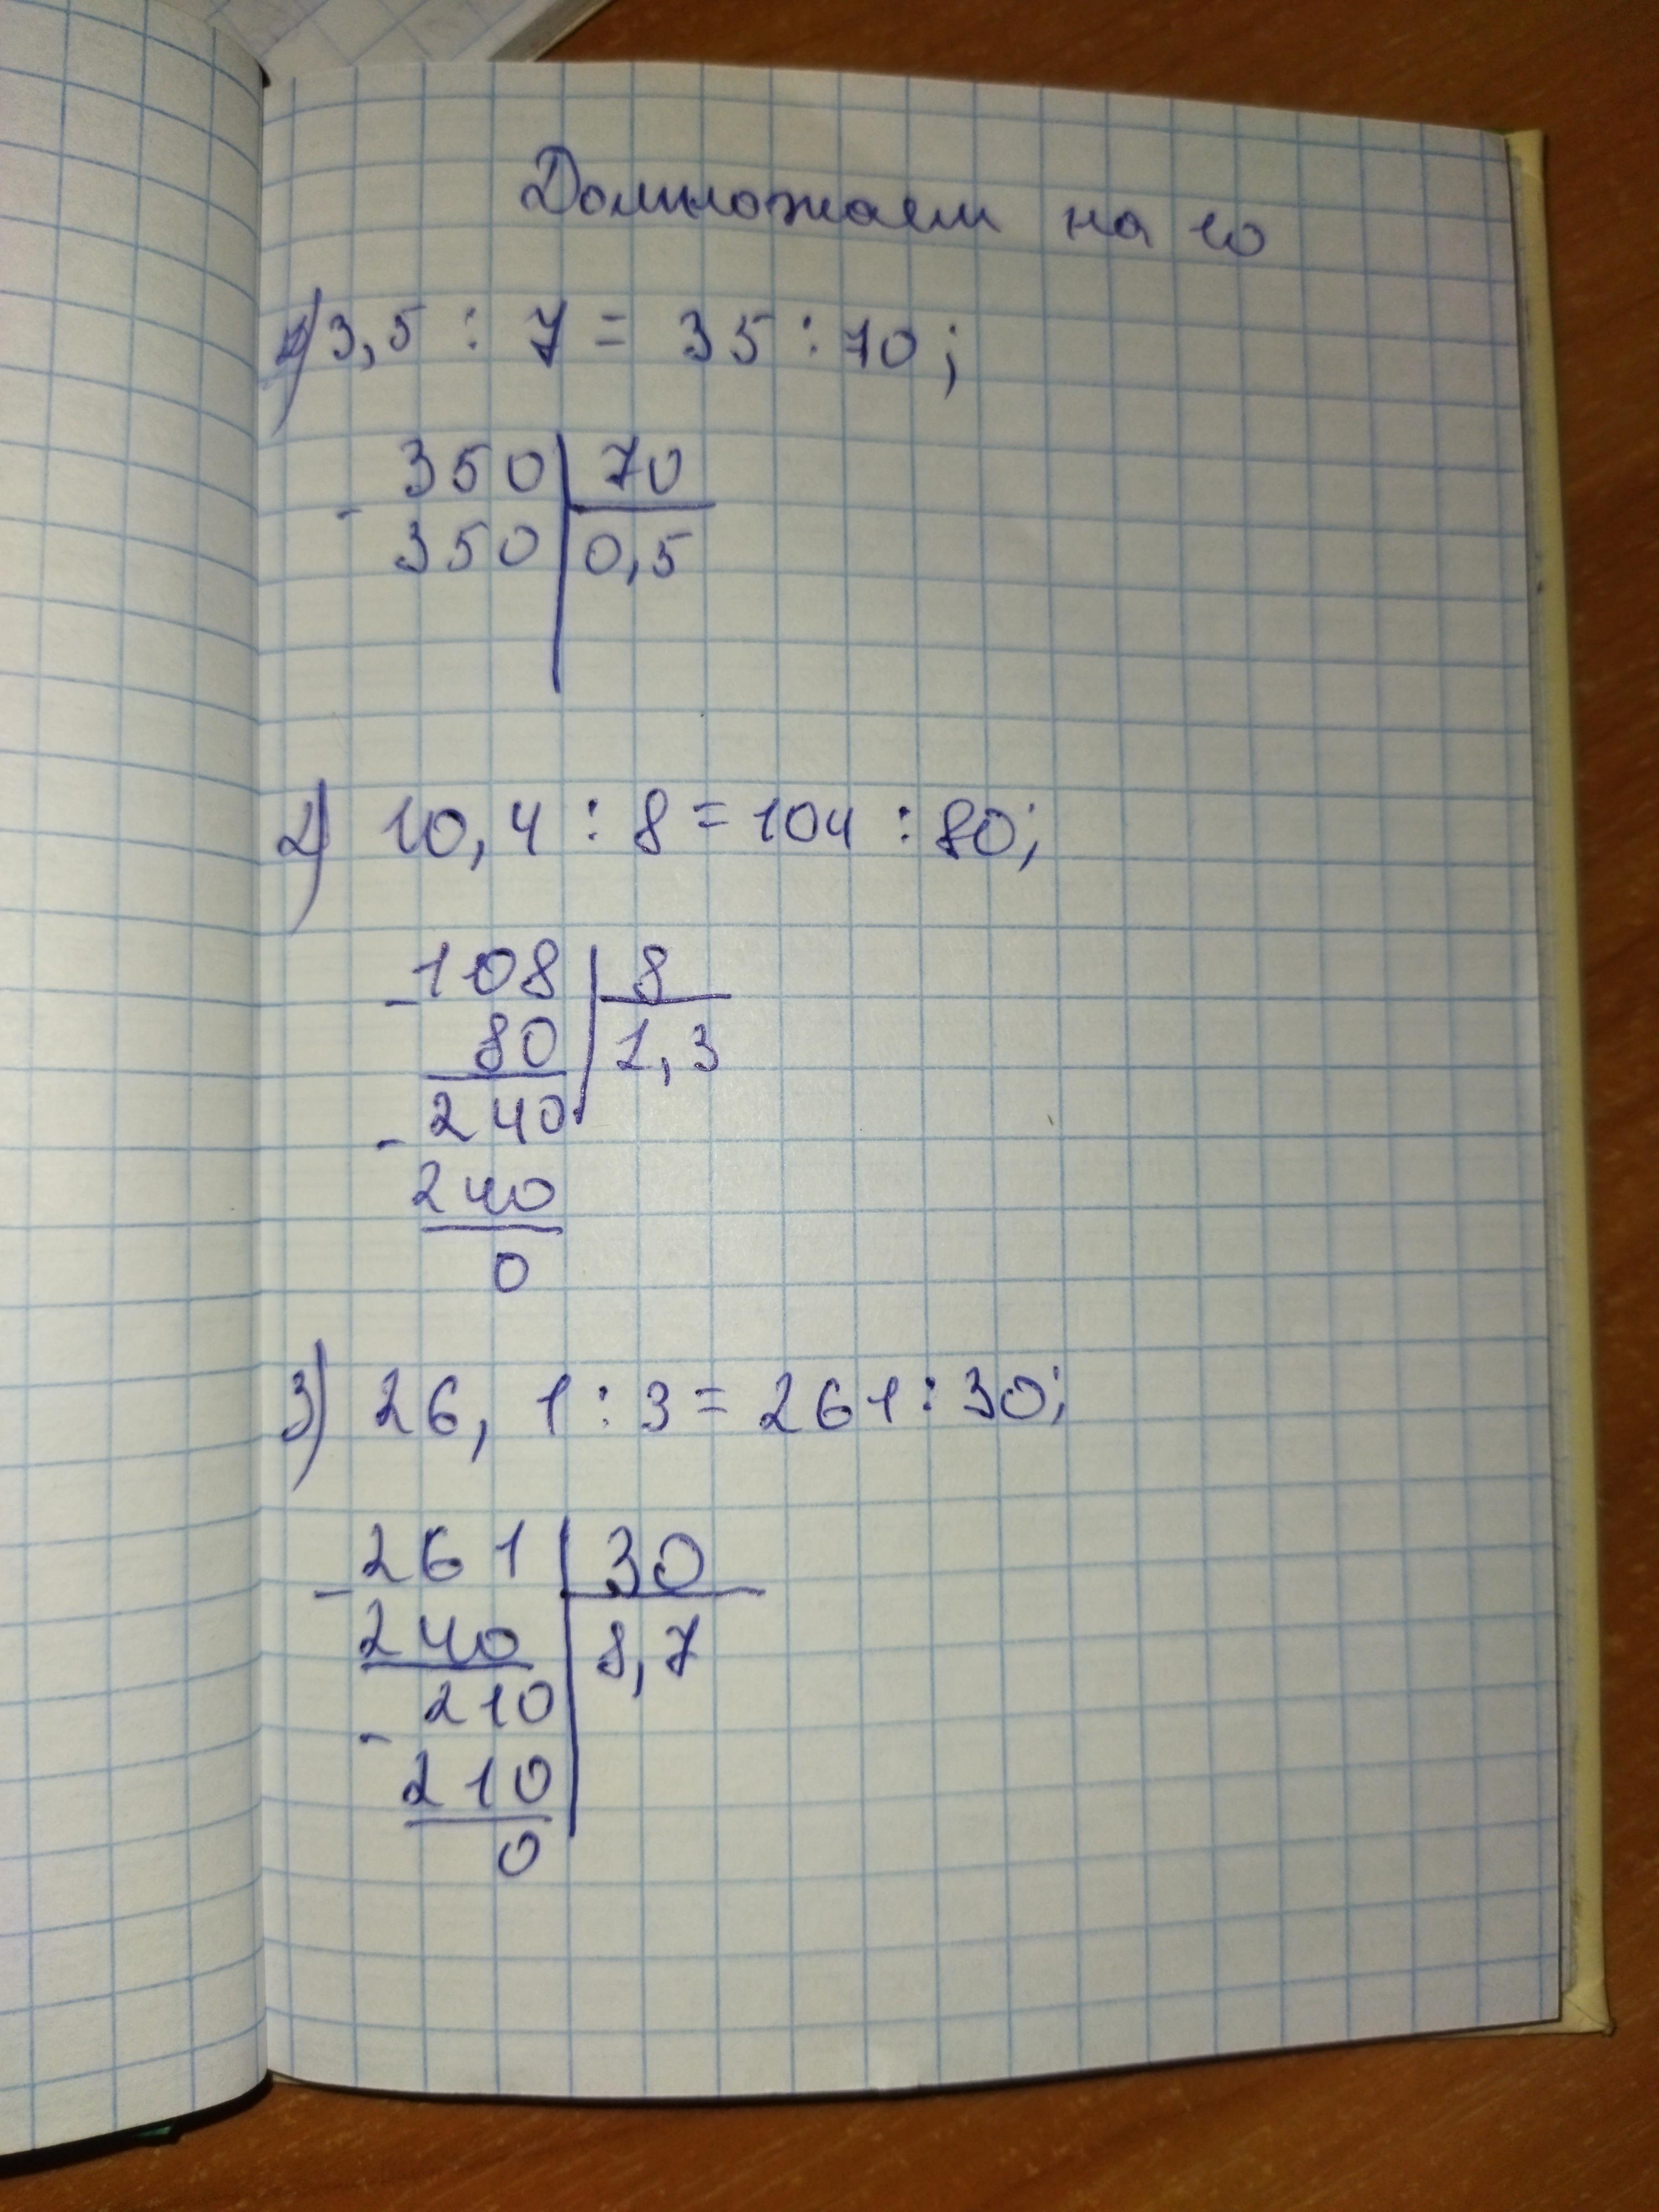 Домножаем на 10
1) 3,5 : 7 = 35 : 70;
- 350 | 70
350 | 0,5
2) 10,4 : 8 = 104 : 80;
- 108 | 8
80 | 1,3
- 240
240
0
3) 26,1 : 3 = 261 : 30;
- 261 | 30
240 | 8,7
- 210
210
0